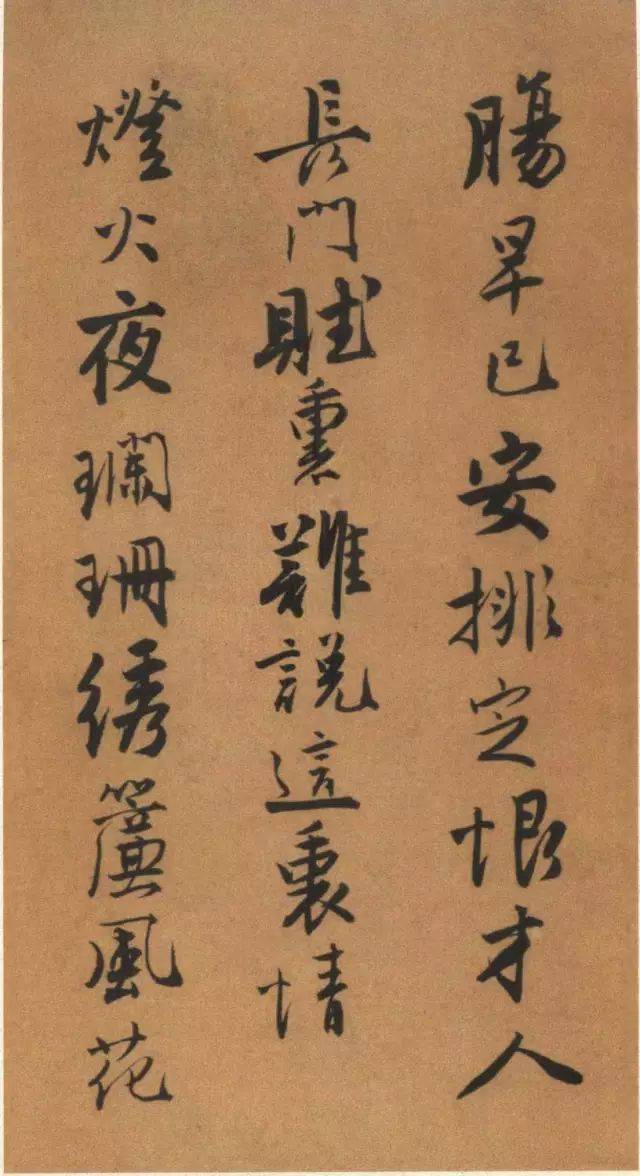 腸早已安排定恨才人
長門賦裏難說這裏情
燈火夜斓珊綉簾風花